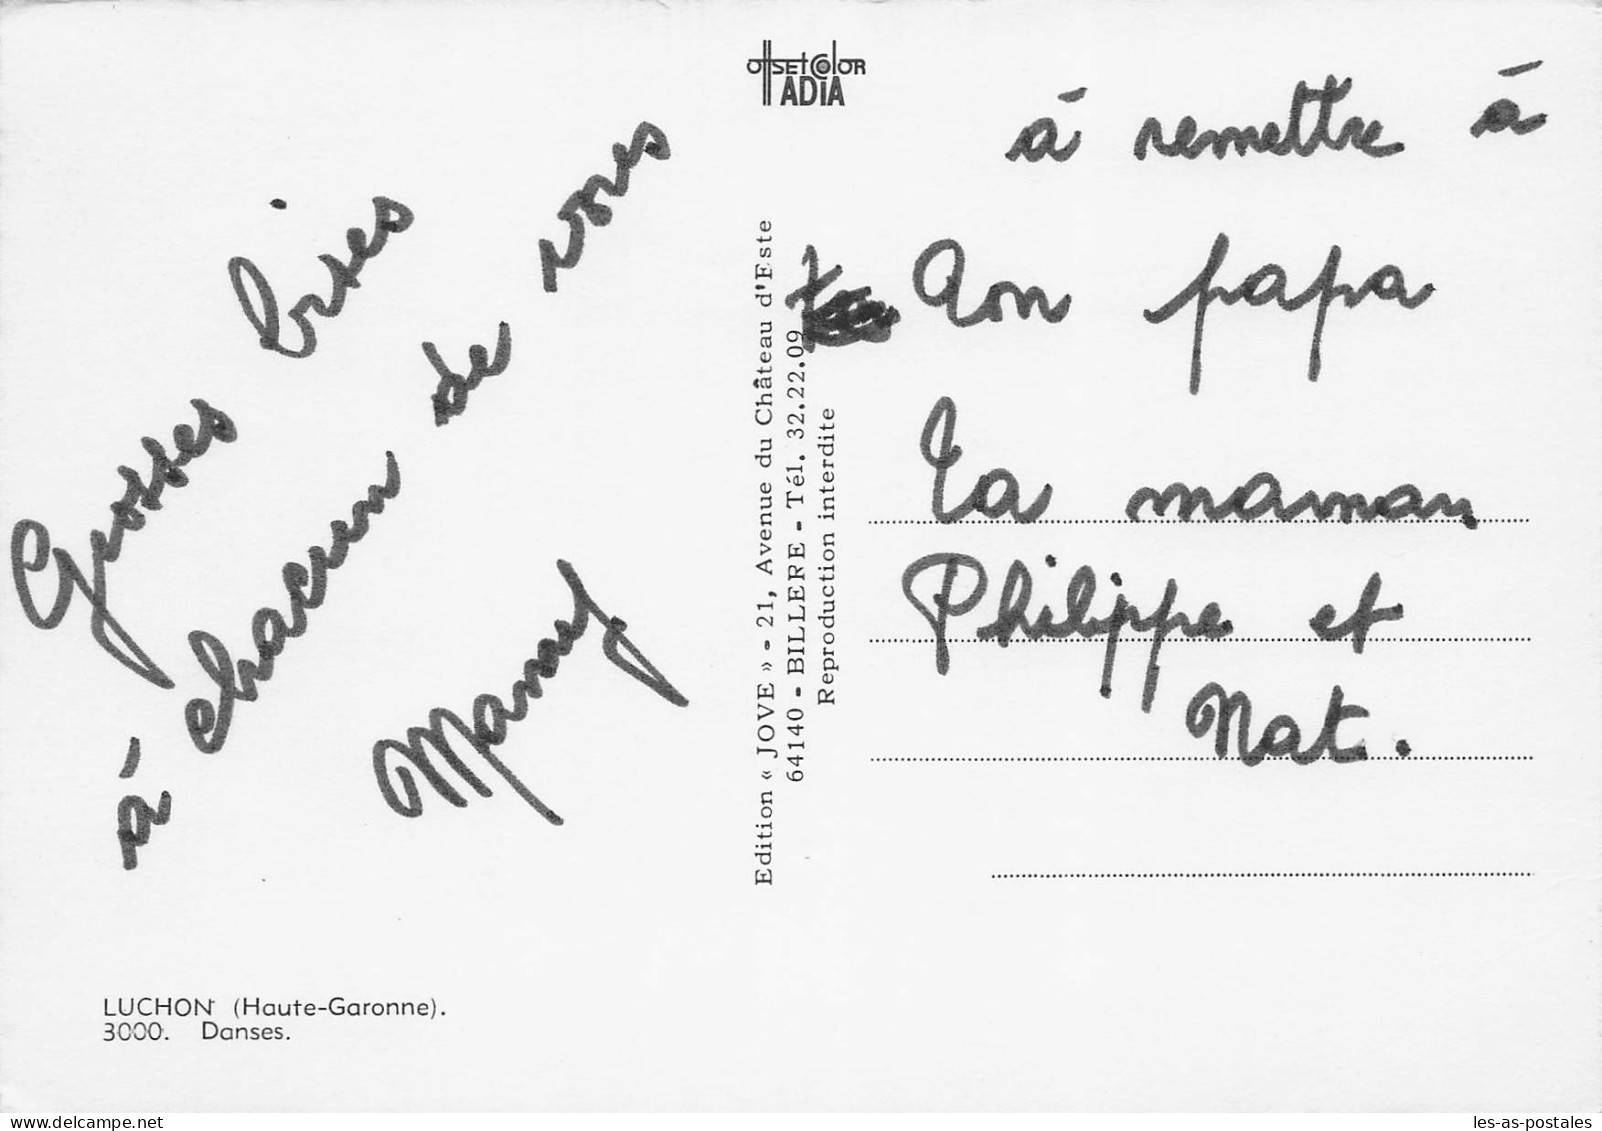 Grosses bises
à chacun de vous
Mamy.
OffsetColor
ADIA
Edition « JOVE » - 21, Avenue du Château d'Este
64140 - BILLERE - Tél. 32.22.09
Reproduction interdite
à remettre à
ton papa
ta maman
Philippe et
Nat.
LUCHON (Haute-Garonne).
3000. Danses.
les-as-postales